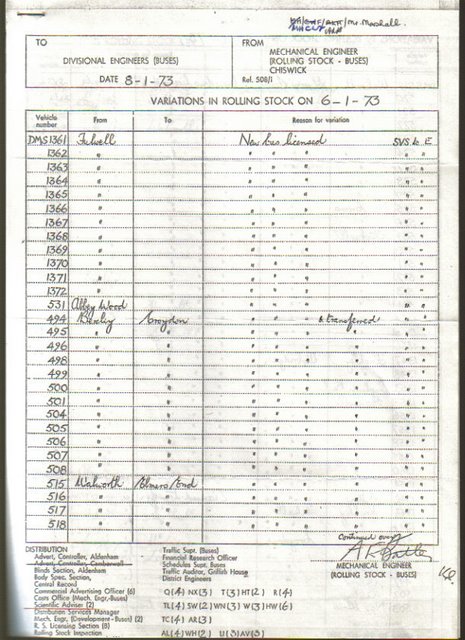 Mr. Marshall.
TO
FROM
DIVISIONAL ENGINEERS (BUSES)
MECHANICAL ENGINEER
(ROLLING STOCK - BUSES)
CHISWICK
DATE 8-1-73
Ref. 508/1
VARIATIONS IN ROLLING STOCK ON 6-1-73
Vehicle number From To Reason for variation
DMS1361 Fulwell New bus licensed SVS. b E
1362 " " " " " "
1363 " " " " " "
1364 " " " " " "
1365 " " " " " "
1366 " " " " " "
1367 " " " " " "
1368 " " " " " "
1369 " " " " " "
1370 " " " " " "
1371 " " " " " "
1372 " " " " " "
531 Abbey Wood " " " " "
494 Bexley Croydon " " " & transferred " "
495 " " " " " " " "
496 " " " " " " " "
498 " " " " " " " "
499 " " " " " " " "
500 " " " " " " " "
501 " " " " " " " "
504 " " " " " " " "
505 " " " " " " " "
506 " " " " " " " "
507 " " " " " " " "
508 " " " " " " " "
515 Walworth Elmers End " " " " " "
516 " " " " " " " "
517 " " " " " " " "
518 " " " " " " " "
Continued over
MECHANICAL ENGINEER
(ROLLING STOCK - BUSES)
DISTRIBUTION
Advert. Controller, Aldenham
Advert. Controller, Camberwell
Blinds Section, Aldenham
Body Spec. Section,
Central Record
Commercial Advertising Officer (6)
Costs Office (Mech. Engr.-Buses)
Scientific Adviser (2)
Distribution Services Manager
Mech. Engr. (Development - Buses) (2)
R. S. Licensing Section (8)
Rolling Stock Inspection
Traffic Supt. (Buses)
Financial Research Officer
Schedules Supt. Buses
Traffic Auditor, Griffith House
District Engineers
Q(4) NX(3) T(3) HT(2) R(4)
TL(4) SW(2) WN(3) W(3) HW(6)
TC(4) AR(3)
AL(4) WH(2) U(3) AV(3)